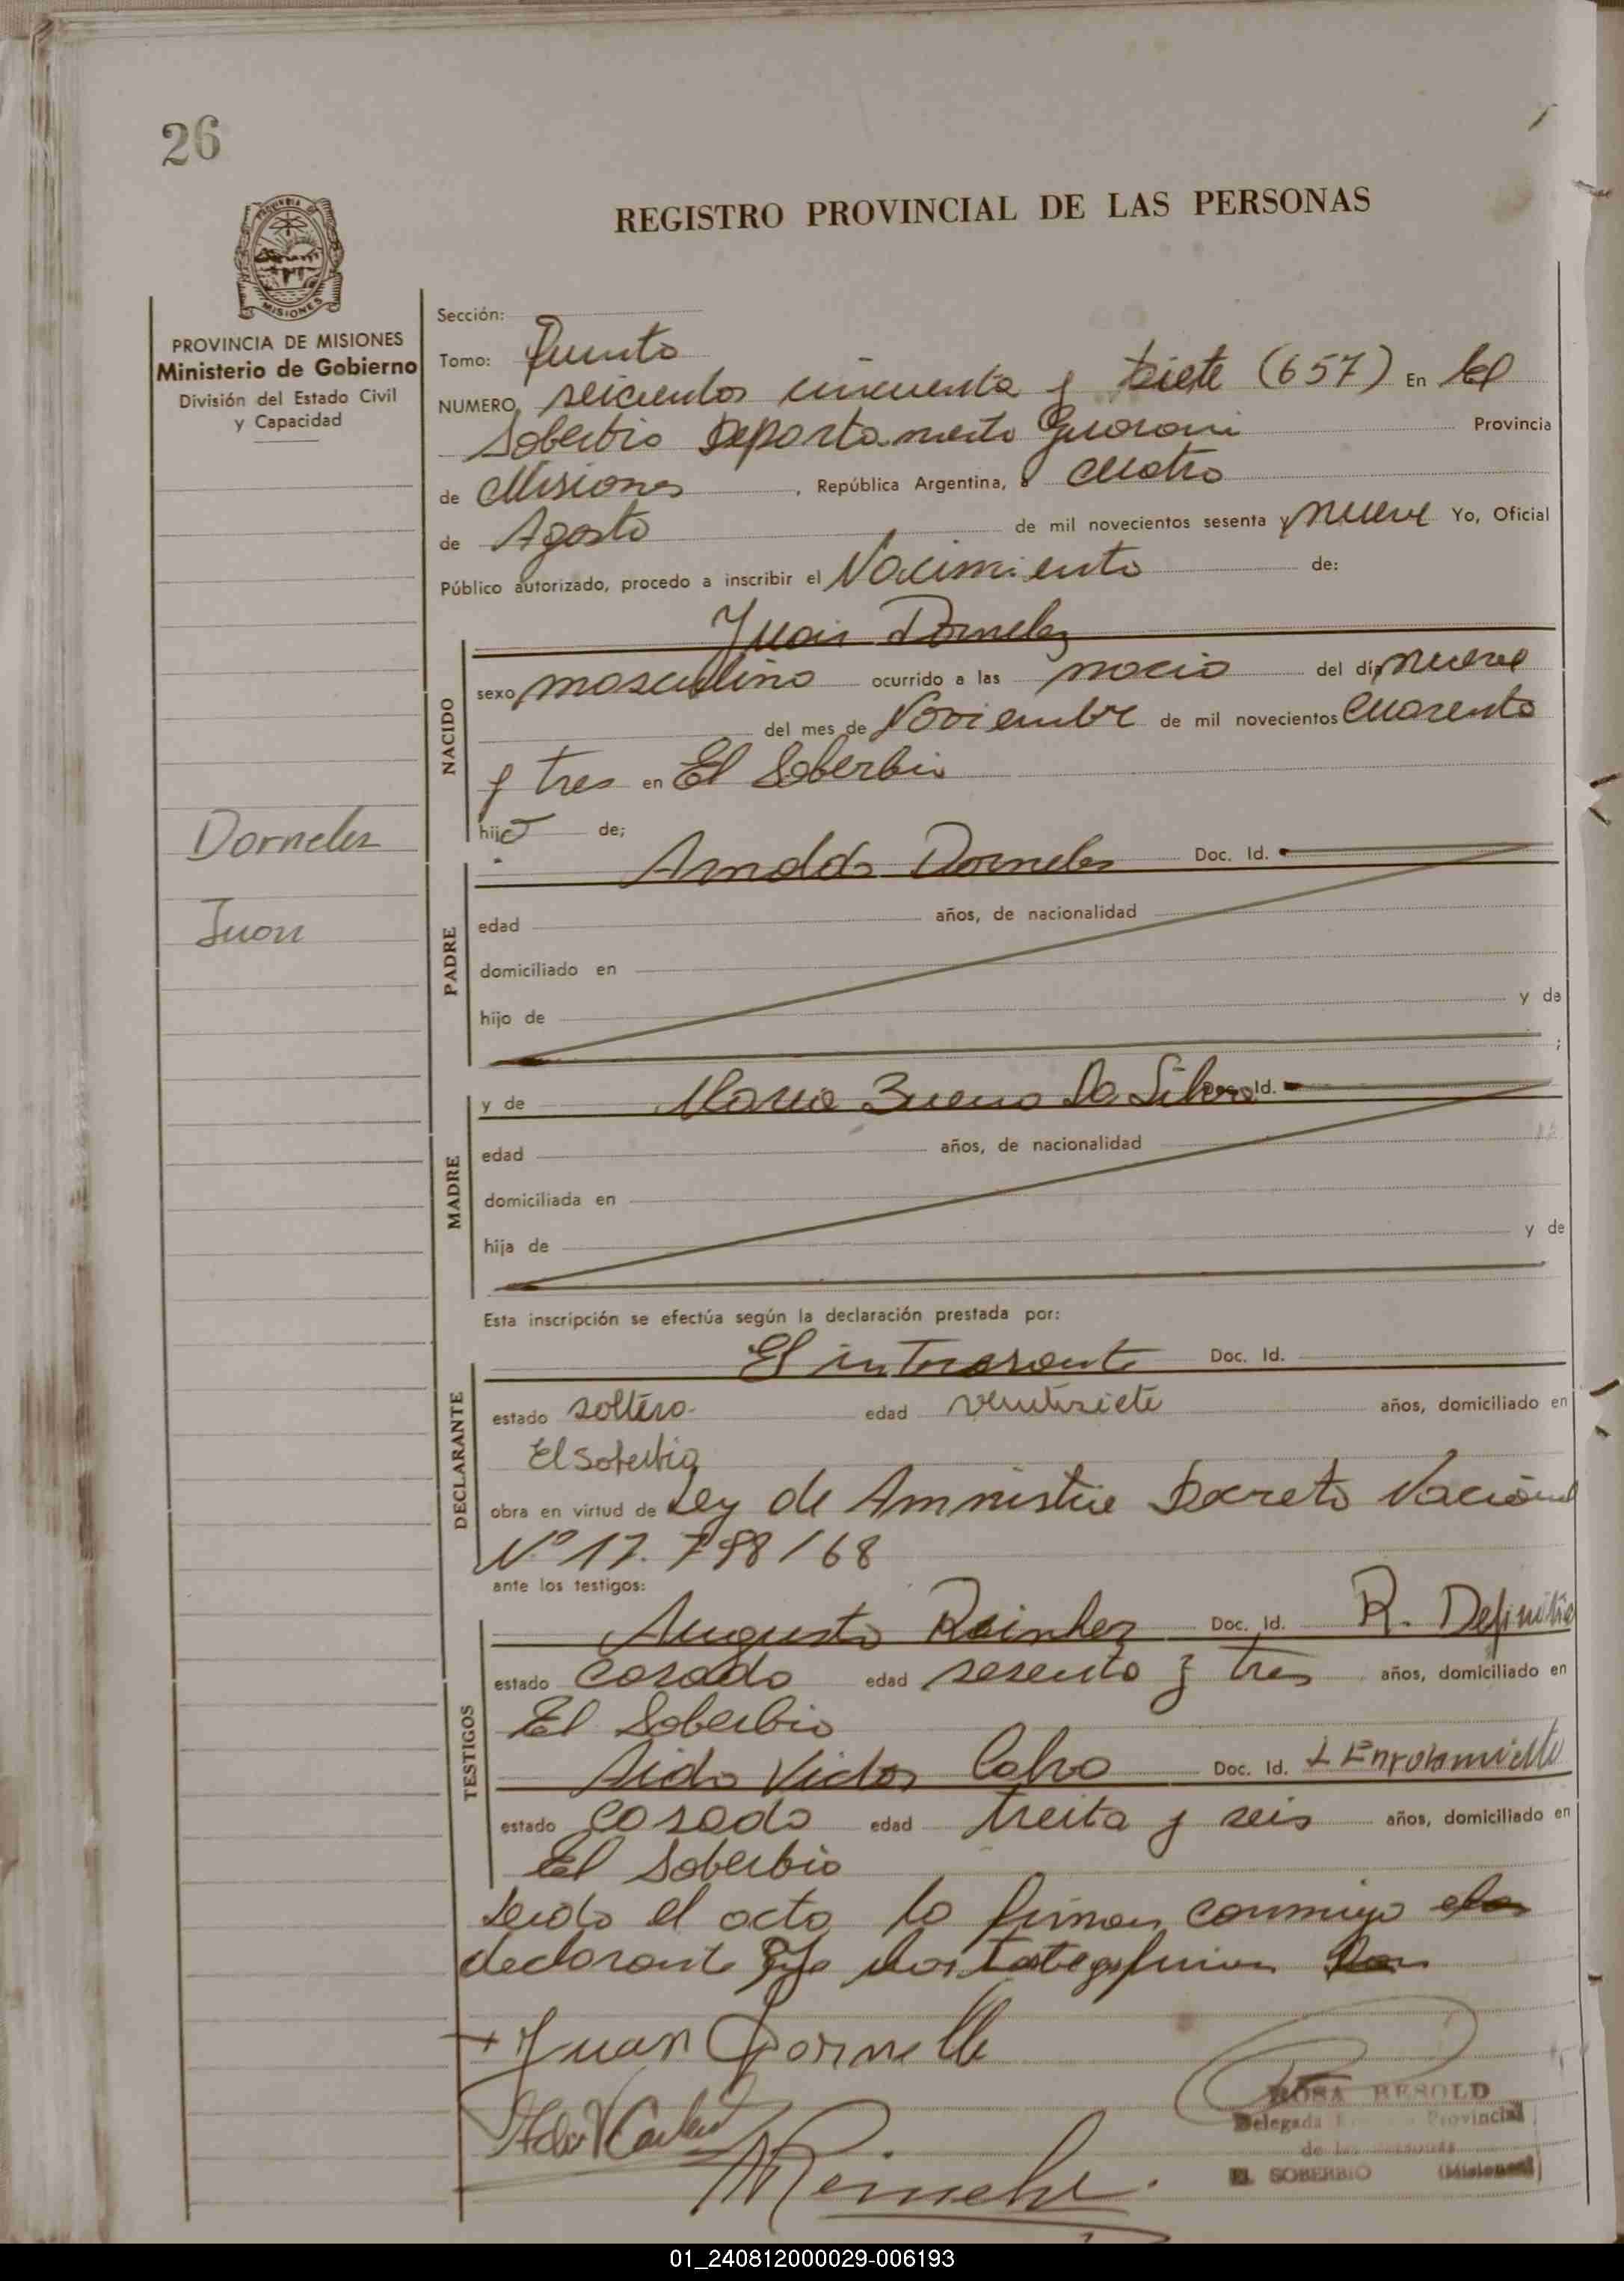 26
PROVINCIA DE MISIONES
REGISTRO PROVINCIAL DE LAS PERSONAS
PROVINCIA DE MISIONES
Ministerio de Gobierno
División del Estado Civil
y Capacidad
Sección:
Tomo: Quinto
NUMERO, seicientos cincuenta y siete (657) En El
Soberbio Departamento Guarani Provincia
de Misiones, República Argentina, a cuatro
de Agosto de mil novecientos sesenta y nueve Yo, Oficial
Público autorizado, procedo a inscribir el Nacimiento de:
Juan Dornelez
NACIDO
sexo masculino ocurrido a las nacio del día nueve
del mes de Noviembre de mil novecientos cuarenta
y tres en El Soberbio
hijo de;
Dorneles
Juan
PADRE
Arnoldo Dorneles Doc. Id.
edad años, de nacionalidad
domiciliado en
hijo de y de
;
MADRE
y de Maria Bueno Da Silva Doc. Id.
edad años, de nacionalidad
domiciliada en
hija de y de
Esta inscripción se efectúa según la declaración prestada por:
DECLARANTE
El interesante Doc. Id.
estado soltero edad veintisiete años, domiciliado en
El Soberbio
obra en virtud de Ley de Amnistia Decreto Nacional
Nº 17.798/68
ante los testigos:
TESTIGOS
Augusto Doc. Id. R. Definitiva
estado casado edad sesenta y tres años, domiciliado en
El Soberbio
Victor Calvo Doc. Id. L Enrolamiento
estado casado edad treita y seis años, domiciliado en
El Soberbio
Leido el acta la firman conmigo
declorante
Juan Dornelle
ROSA BESOLD
Delegada Provincial
de las
EL SOBERBIO (Misiones)
01_240812000029-006193